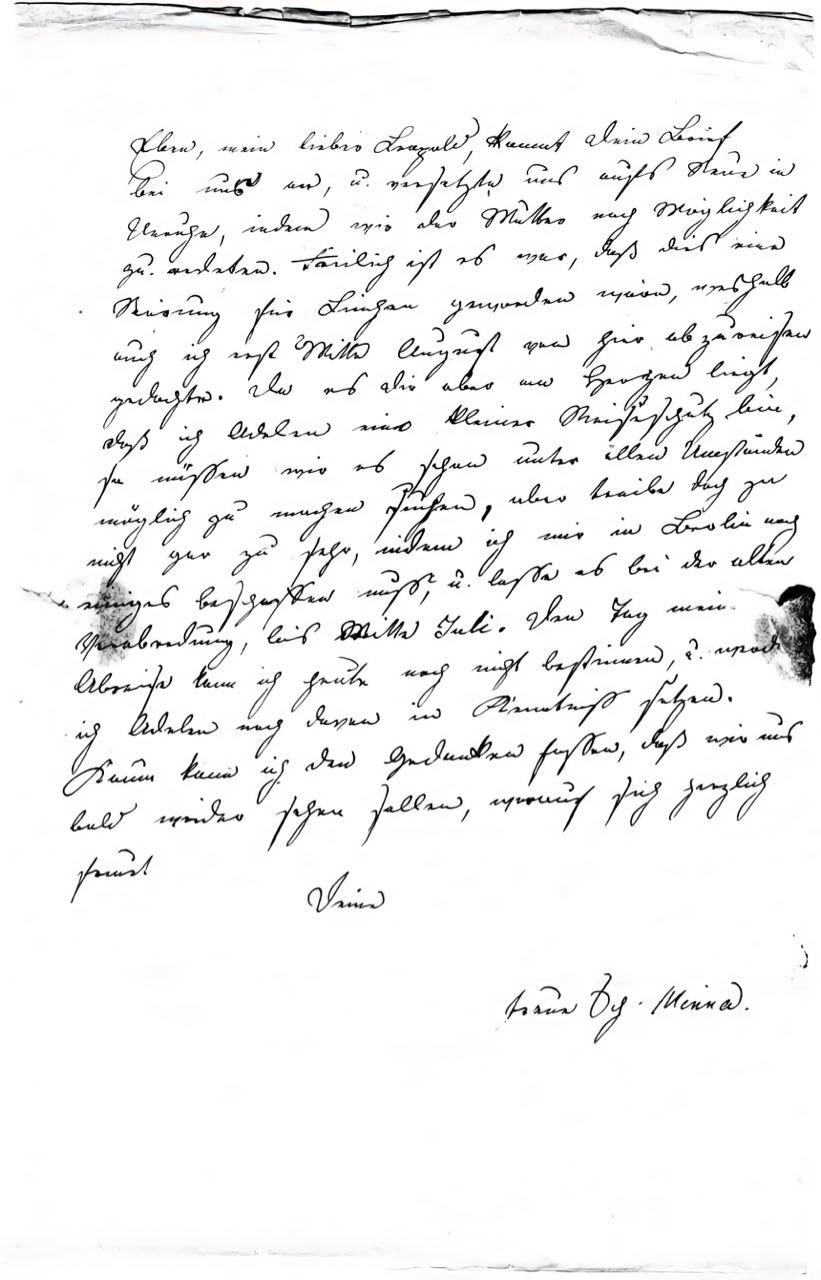 Eben, mein lieber Leopold, kommt Dein Brief
bei uns an, u. versetzte uns aufs Neue in
Unruhe, indem wir der Mutter nach Möglichkeit
zu redeten. Freilich ist es war, daß dies eine
Störung für Linchen geworden wäre, weshalb
auch ich erst Mitte August von hier abzureisen
gedachte. Da es dir aber am Herzen liegt,
daß ich Adelen eine kleiner Reiseschutz bin,
so müssen wir es schon unter allen Umständen
möglich zu machen suchen, aber treibe doch ja
nicht gar zu sehr, indem ich mir in Berlin noch
einiges beschaffen muß, u. lasse es bei der alten
Verabredung, bis Mitte Juli. Den Tag mein
Abreise kann ich heute noch nicht bestimmen, u. werde
ich Adelen noch davon in Kenntniß setzen.
Kaum kann ich den Gedanken fassen, daß wir uns
bald wieder sehen sollen, worauf sich herzlich
freut
Deine
treue Sch. Minna.